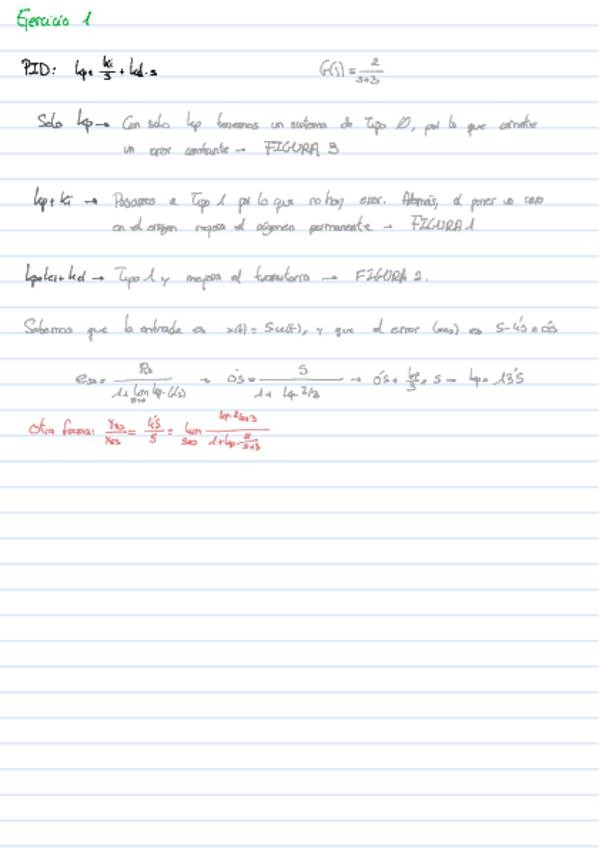 Ejercicio 1
PID: kp + ki/s + kd·s G(s) = 2/(s+3)
Solo kp → Con solo kp tenemos un sistema de Tipo 0, por lo que existe
un error constante → FIGURA 3
kp + ki → Pasamos a Tipo 1 por lo que no hay error. Además, al poner un cero
en el origen mejora el régimen permanente → FIGURA 1
kp+ki+kd → Tipo 1 y mejora el transitorio → FIGURA 2.
Sabemos que la entrada es x(t) = 5u(t), y que el error (ess) es 5-4'5 = 0'5
ess = R0/(1+ lim s→0 kp·G(s)) → 0'5 = 5/(1+ kp·2/3) → 0'5 + kp/3 = 5 → kp = 13'5
Otra forma: yss/xss = 4'5/5 = lim s→0 (kp·2/s+3)/(1+kp·2/s+3)